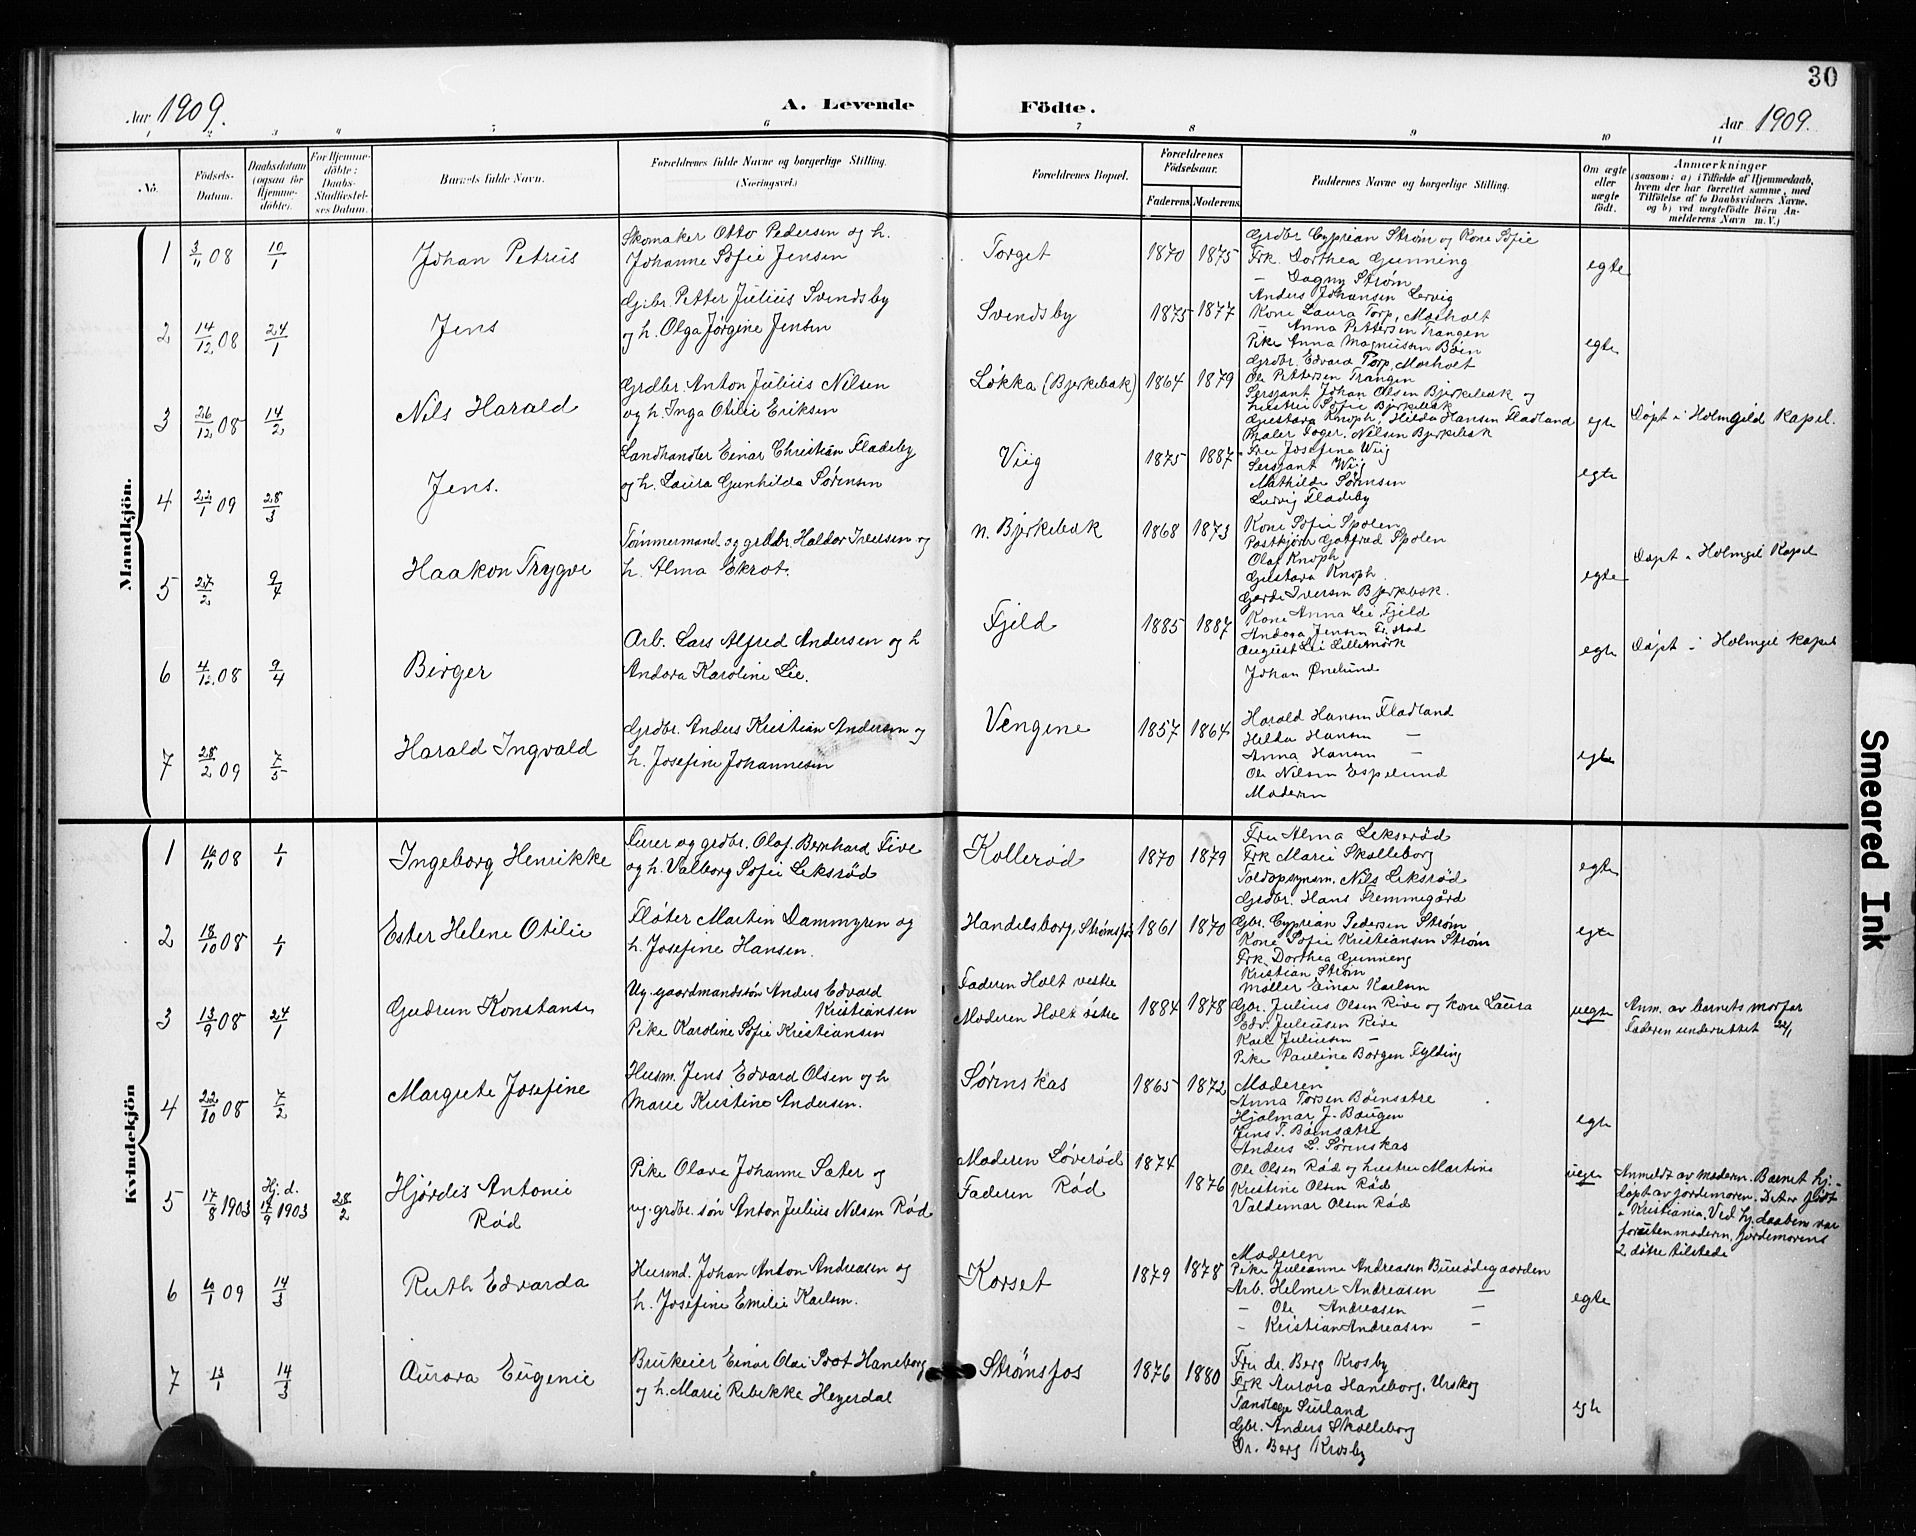 30
Aar 1909.
A. Levende Födte.
Aar 1909.
1 2 3 4 5 6 7 8 9 10 11
No.
Födsels-Datum.
Daabsdatum (ogsaa for Hjemme-döbte).
For Hjemme-döbte: Daabs-Stadfæstel-ses Datum.
Barnets fulde Navn.
Forældrenes fulde Navne og borgerlige Stilling. (Næringsvei.)
Forældrenes Bopæl.
Forældrenes Födselsaar.
Faderens. Moderens.
Faddernes Navne og borgerlige Stilling.
Om ægte eller uægte födt.
Anmærkninger
(saasom: a) i Tilfælde af Hjemmedaab, hvem der har forrettet samme, med Tilföielse af to Daabsvidners Navne, og b) ved uægtefödte Börn An-melderens Navn m. V.)
Mandkjön.
1 3/11 08 10/1 Johan Petrus
Skomaker Otto Pedersen og h.
Johanne Sofie Jensen
Torget 1870 1875
Grdbr Cyprian Strøm og Kone Sofie
Frk. Dorthea Gunning
— Dagny Strøm
egte
2 14/12 08 24/1 Jens
Gbr. Petter Julius Svendsby
og h. Olga Jørgine Jensen
Svendsby 1875 1877
Anders Johansen Lervig
Kone Laura Torp, Morholt
— Anna Pettersen Trangen
Pike Anna Magnussen Bøen
Grdbr. Edvard Torp, Morholt
Ole Pettersen Trangen
egte
3 26/12 08 14/2 Nils Harald
Grdbr. Anton Julius Nilsen
og h. Inga Otilie Eriksen
Løkka (Bjerkebæk) 1864 1879
Sersjant Johan Olsen Bjerkebæk og
hustru Sofie Bjerkebæk
Gustava Knoph, Hilda Hansen Fladland
Thaler Foger. Nilsen Bjerkebæk
egte
Døpt i Holmgild Kapel.
4 22/1 09 28/3 Jens.
Landhandler Einar Christian Fladeby
og h. Laura Gunhilda Sørensen
Viig 1875 1887
Fru Josefine Wiig
Sersjant Wiig
Mathilde Sørensen
Ludvig Fladeby
egte
5 27/2 9/4 Haakon Trygve
Tømmermand og grdbr. Haldor Iversen og
h. Alma Ekrot.
n. Bjerkebæk 1868 1873
Kone Sofie Spolen
Postkjører Gotfred Spolen
Olaf Knoph
Gustava Knoph
Gerde Iversen Bjerkebæk.
egte
Døpt i Holmgil Kapel
6 4/12 08 9/4 Birger
Arb. Lars Alfred Andersen og h
Andora Karoline Lie.
Fjeld 1885 1887
Kone Anna Lie Fjeld
Andora Jensen Fr.stad
August Lie Lillemørk
Johan Ønelund
egte
Døpt i Holmgil kapel
7 28/2 09 7/5 Harald Ingvald
Grdbr. Anders Kristian Andersen og
h. Josefine Johannesen
Vengene 1857 1864
Harald Hansen Fladland
Hilda Hansen —
Anna Hansen —
Ole Nilsen Espelund
Moderen
egte
Kvindekjön
1 16/11 08 1/1 Ingeborg Henrikke
Furer og grdbr. Olaf Bernhard Five
og h. Valborg Sofie Lekserød
Kollerød 1870 1879
Fru Alma Lekserød
Frk Marie Skolleborg
Toldopsynsm. Nils Lekserød
Grdbr. Hans Fremmegård
egte
2 18/10 08 1/1 Ester Helene Otilie
Fløter Martin Dammyren og
h. Josefine Hansen.
Handelsborg, Strømsfos 1861 1870
Gbr. Cyprian Pedersen Strøm
Kone Sofie Kristiansen Strøm
Frk. Dorthea Gunneng
Kristian Strøm
Møller Einar Karlsen
egte
3 13/9 08 24/1 Gudrun Konstanse
Ug. gaardmandssøn Anders Edvard
Kristiansen
Pike Karoline Sofie Kristiansen
Faderen Holt vestre
Moderen Holt østre 1884 1878
Gbr. Julius Olsen Rive og kone Laura
Edv. Juliusen Rive
Karl Juliusen —
Pike Pauline Borgen Fylding
uegte
Anm. av barnets morfar
Faderen underrettet 22/1
4 22/10 08 7/2 Margrete Josefine
Husm. Jens Edvard Olsen og h
Marie Kristine Andersen.
Sørenskas 1865 1872
Moderen
Anna Torsen Bøensætre
Hjalmar J. Baugen
Jens T. Bøensætre
Anders L. Sørenskas
egte
5 17/8 1903 Hj. d. 17/9 1903 28/2 Hjørdis Antonie
Rød
Pike Olava Johanne Sæter og
ug. grdbr. søn Anton Julius Nilsen Rød
Moderen Løverød 1874
Faderen Rød 1876
Ole Olsen Rød og hustru Martine
Kristine Olsen Rød
Valdemar Olsen Rød
uegte
Anmeldt av moderen. Barnet hj.-
døpt av jordemoren. Det er født
i Kristiania. Ved hj. daaben var
foruten moderen, jordemorens
2 døtre tilstede
6 10/1 09 14/3 Ruth Edvarda
Husmd. Johan Anton Andreasen og
h. Josefine Emilie Karlsen.
Korset 1879 1878
Moderen
Pike Julianne Andreasen Buerødegaarden
Arb. Helmer Andreasen —
— Ole Andreasen —
— Kristian Andreasen —
egte
7 13/1 14/3 Aurora Eugenie
Brukeier Einar Olai Soot Haneborg
og h. Marie Rebekke Heyerdal
Strømsfos 1876 1880
Fru dr. Berg Krosby
Frk Aurora Haneborg, Urskog
Tandlæge Surland
Gbr. Anders Skolleborg
Dr. Berg Krosby
egte
Smeared Ink